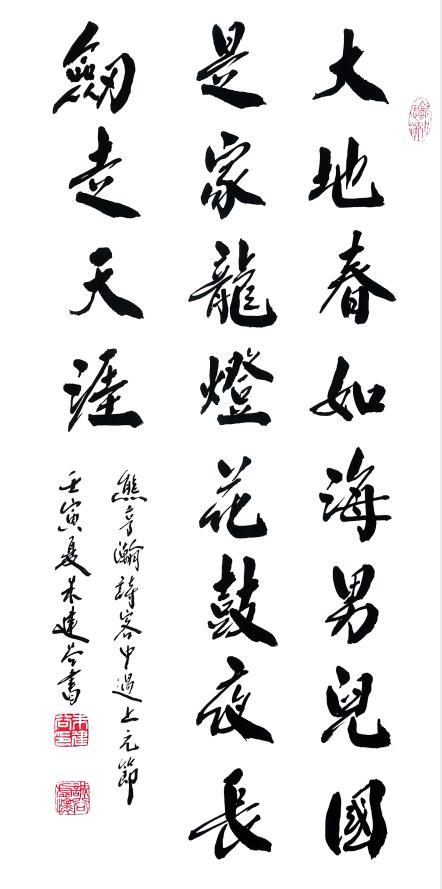 大地春如海男兒國
是家龍燈花鼓夜長
劒走天涯
熊亨瀚詩客中過上元節
壬寅夏朱建書